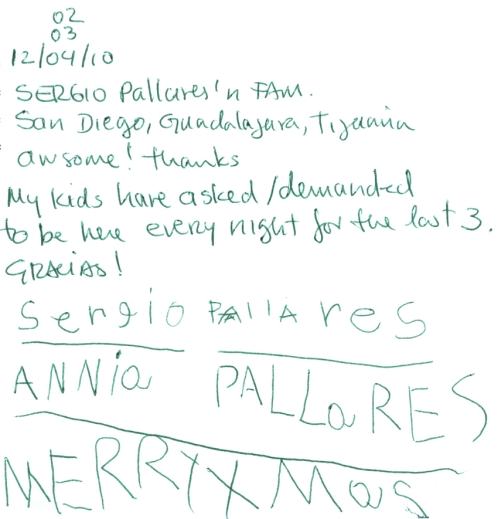 02
03
12/04/10
SERGIO Pallares'n FAM.
San Diego, Guadalajara, Tijuana
awsome! thanks
My kids have asked/demanded
to be here every night for the last 3.
GRACIAS!
Sergio PAllAreS
ANNia PALLaRES
MERRY XMas